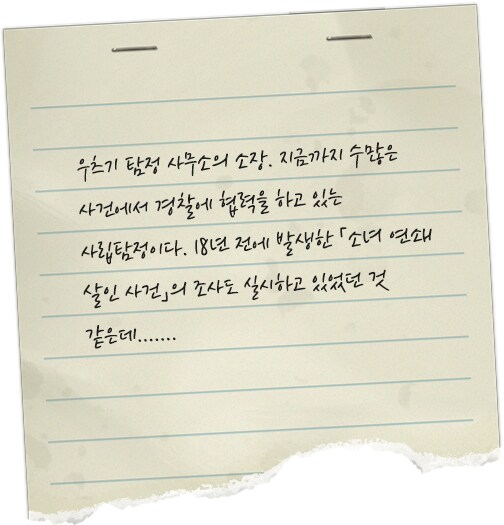 우츠기 탐정 사무소의 소장. 지금까지 수많은
사건에서 경찰에 협력을 하고 있는
사립탐정이다. 18년 전에 발생한 「소녀 연쇄
살인 사건」의 조사도 실시하고 있었던 것
같은데.......